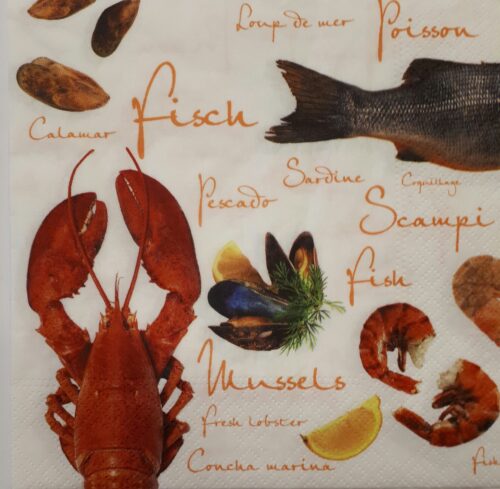 Loup de mer
Poisson
Fisch
Calamar
Sardine
Coquillage
Pescado
Scampi
Fish
Mussels
fresh lobster
Concha marina
Fish